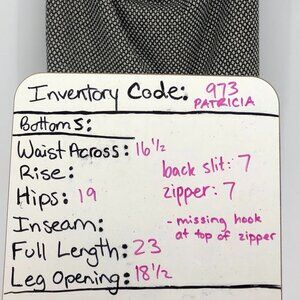 Inventory Code: 973
PATRICIA
Bottoms:
Waist Across: 16 1/2
Rise:
back slit: 7
Hips: 19
zipper: 7
Inseam:
- missing hook
at top of zipper
Full Length: 23
Leg Opening: 18 1/2